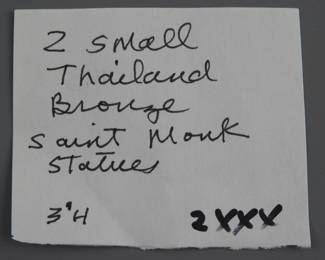 2 small
Thailand
Bronze
saint Monk
statues
3"H 2XXX